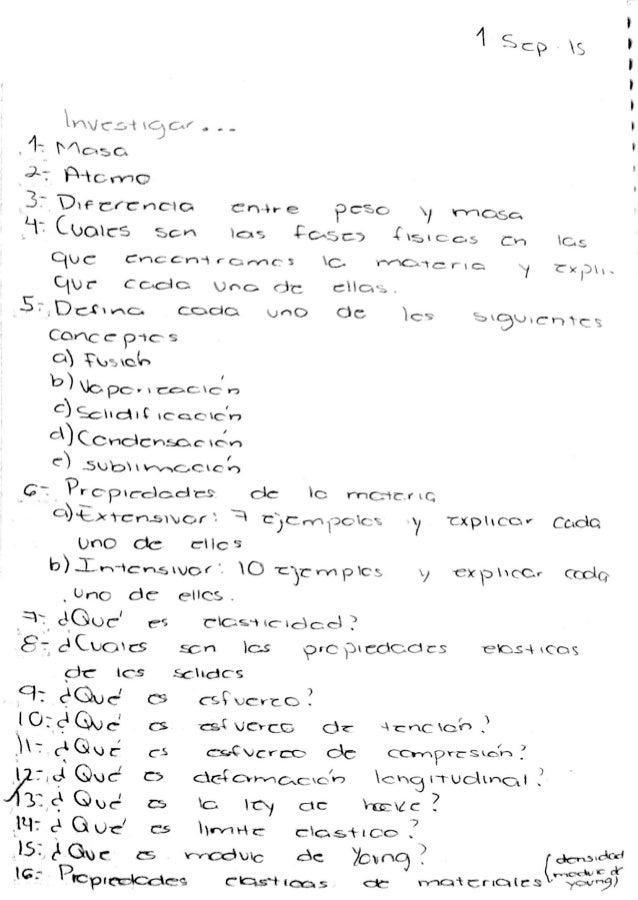 1 Sep 15
Investigar...
1- Masa
2- Atomo
3- Diferencia entre peso y masa
4- Cuales son las fases fisicas en las
que encontramos la materia y expli-
que cada una de ellas.
5- Defina cada uno de los siguientes
conceptos
a) Fusión
b) Vaporización
c) Solidificación
d) Condensación
e) sublimación
6- Propiedades de la materia
a) Extensivar: 7 ejempolos y explicar cada
uno de ellos
b) Intensivar: 10 ejemplos y explicar cada
uno de ellos.
7- ¿Qué es elasticidad?
8- ¿Cuales son las propiedades elasticas
de los solidos
9- ¿Qué es esfuerzo?
10- ¿Qué es esfuerzo de tención?
11- ¿Qué es esfuerzo de compresión?
12- ¿Qué es deformación longitudinal?
13- ¿Qué es la ley de hooke?
14- ¿Qué es limite elastico?
15- ¿Que es modulo de Young?
16- Propiedades elasticas de materiales (densidad modulo de young)